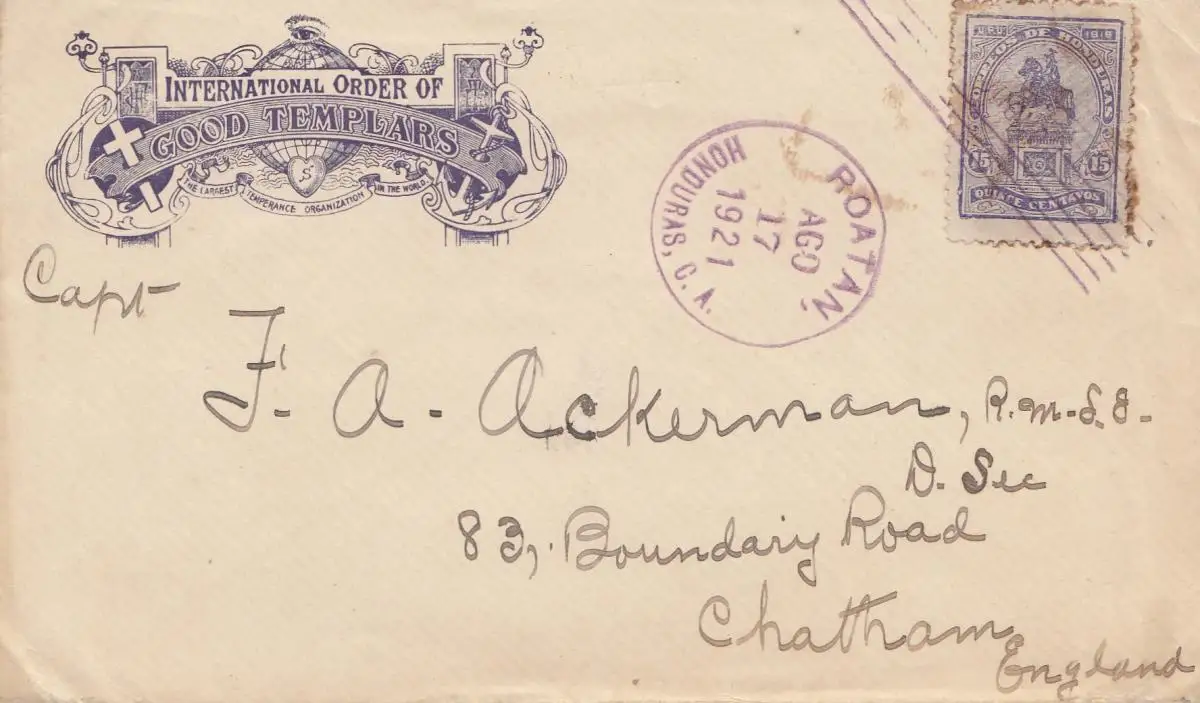 INTERNATIONAL ORDER OF
GOOD TEMPLARS
THE LARGEST TEMPERANCE ORGANIZATION IN THE WORLD.
S
ROATAN,
AGO
17
1921
HONDURAS, C. A.
U.P.U. 1919
CORREOS DE HONDURAS
15 15
QUINCE CENTAVOS
Capt
F. A. Ackerman, R.M.S.E.
D. Sec
83, Boundary Road
Chatham
England